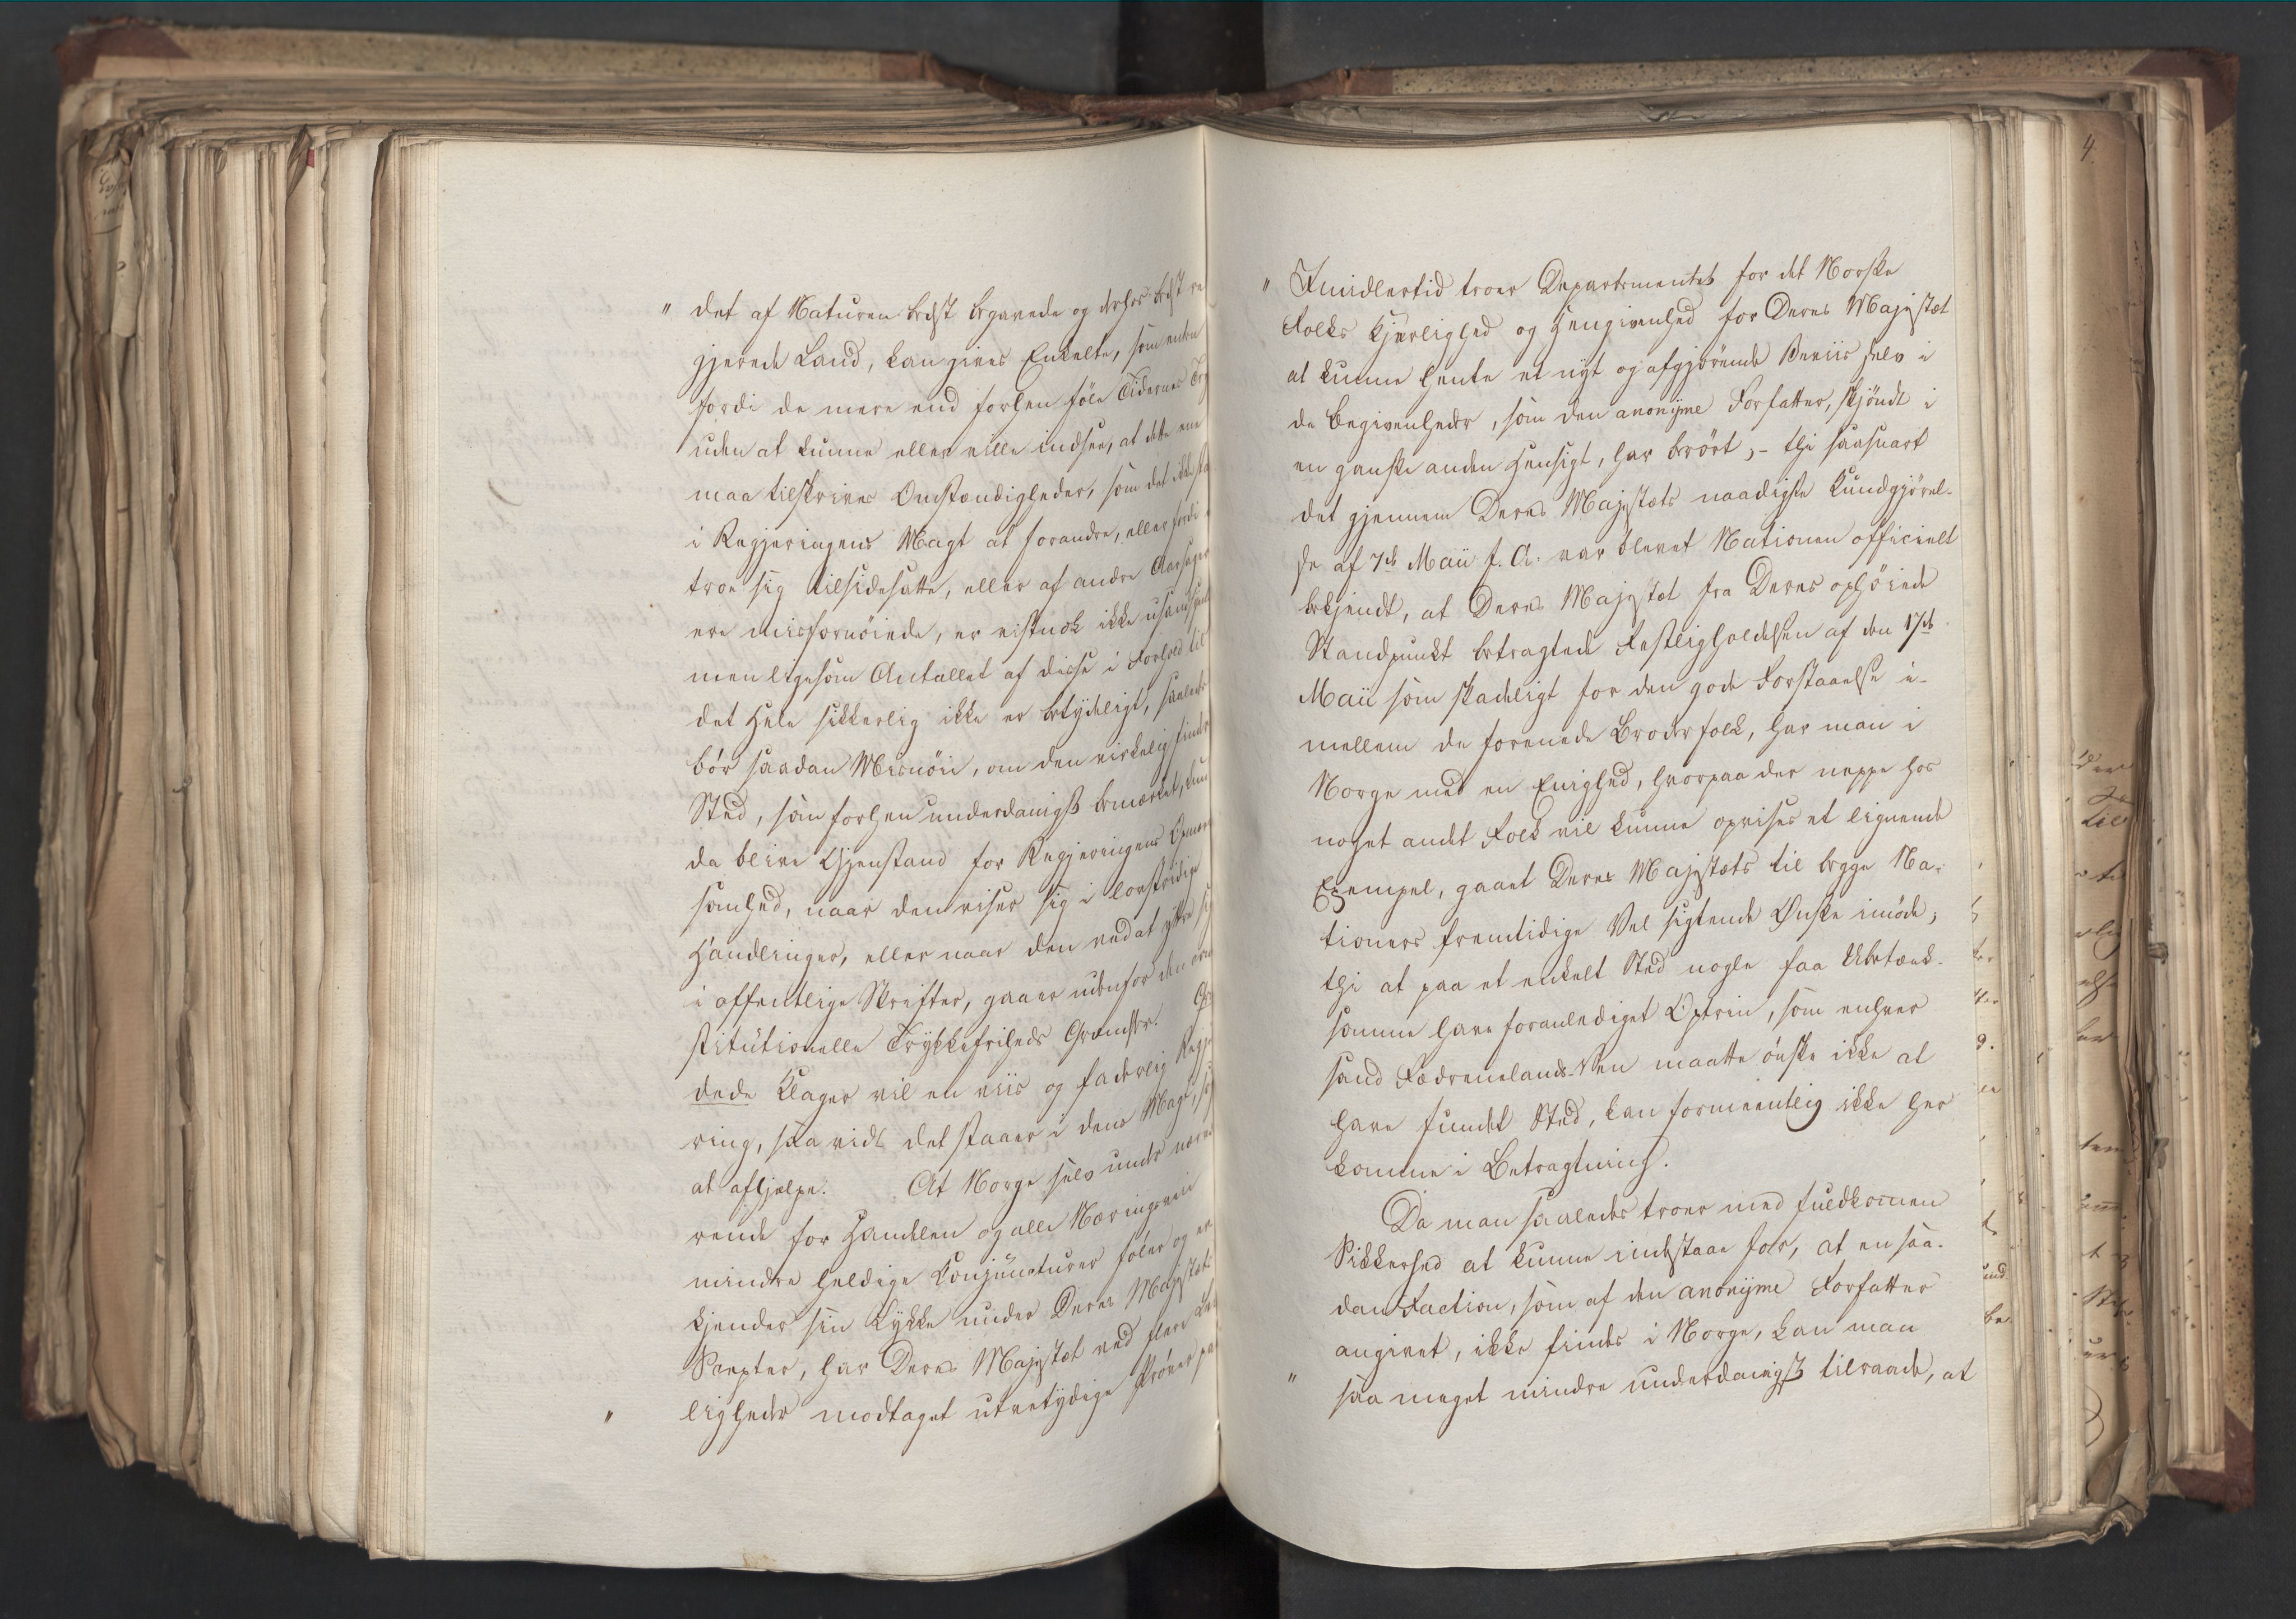 " det af Naturen bedst begavede og derhos bedst re
gjerede Land, kan gives Enkelte, som enten
fordi de mere end forhen føle Tidernes
uden at kunne eller ville indsee, at dette ene
maa tilskrives Omstændigheder, som det ikke sta
i Regjeringens Magt at forandre, eller fordi
troe sig tilsidesatte, eller af andre Aarsager
ere misfornøiede, er vistnok ikke usandsynl
men ligesom Antallet af disse i Forhold til
det Hele sikkerlig ikke er betydeligt, saaledes
bør saadan Misnøie, om den virkelig finder
Sted, som forhen underdanigst bemærket, kun
da blive Gjenstand for Regjeringens Opmærk
somhed, naar den viser sig i lovstridige
Handlinger, eller naar den ved at yttre sig
i offentlige Skrifter, gaaer udenfor den con
stitutionelle Trykkefriheds Grændser. Gr
dede Klager vil en viis og faderlig Regje
ring, saavidt det staaer i dens Magt, sø
at afhjælpe. At Norge selv under nærvæ
rende for Handelen og alle Næringsveie
mindre heldige Conjuncturer føler og er
kjender sin Lykke under Deres Majestæts
Scepter, har Deres Majestæt ved flere Le
" ligheder modtaget utvetydige Prøver paa
" Imidlertid troer Departementet for det Norske
Folks Kjerlighed og Hengivenhed for Deres Majestæt
at kunne hente et nyt og afgjørende Beviis selv i
de Begivenheder, som den anonyme Forfatter, skjøndt i
en ganske anden Hensigt, har berørt; - thi saasnart
det gjennem Deres Majestæts naadigste Kundgjørel-
se af 7de Maii f. A. var blevet Nationen officielt
bekjendt, at Deres Majestæt fra Deres ophøiede
Standpunkt betragtede Festligholdelsen af den 17de
Maii som skadeligt for den gode Forstaaelse i-
mellem de forenede Broderfolk, har man i
Norge med en Enighed, hvorpaa der neppe hos
noget andet Folk vil kunne opvises et lignende
Exempel, gaaet Deres Majestæts til begge Na-
tioners fremtidige Vel sigtende Ønske imøde;
thi at paa et enkelt Sted nogle faa Ubetænk-
somme have foranlediget Optrin, som enhver
sand Fædrenelands-Ven maatte ønske ikke at
have fundet Sted, kan formeentlig ikke her
komme i Betragtning.
Da man saaledes troer med fuldkommen
Sikkerhed at kunne indestaae for, at en saa-
dan Faction, som af den anonyme Forfatter
angivet, ikke findes i Norge, kan man
" saa meget mindre underdanigst tilraade, at
4